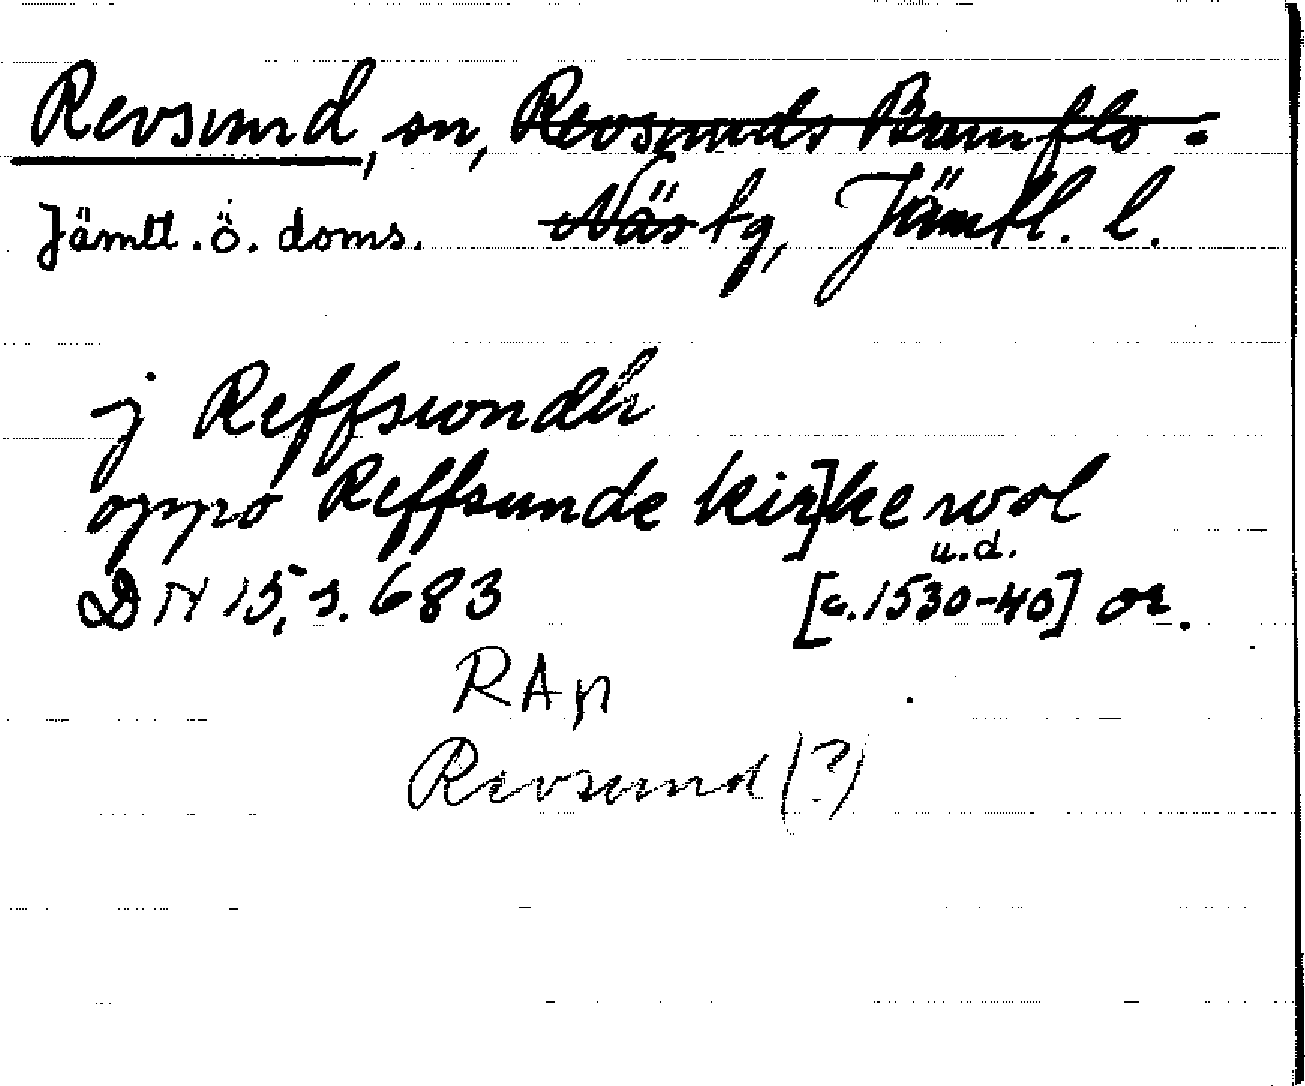 Revsund, sn, Revsunds Brunflo-
Jämtl. ö. doms. Näs tg, Jämtl. l.
j Reffswndh
oppo Reffsunde kir]ke wol
u.d.
DN 15, s. 683 [c. 1530-40] or.
RAp
Revsund (?)